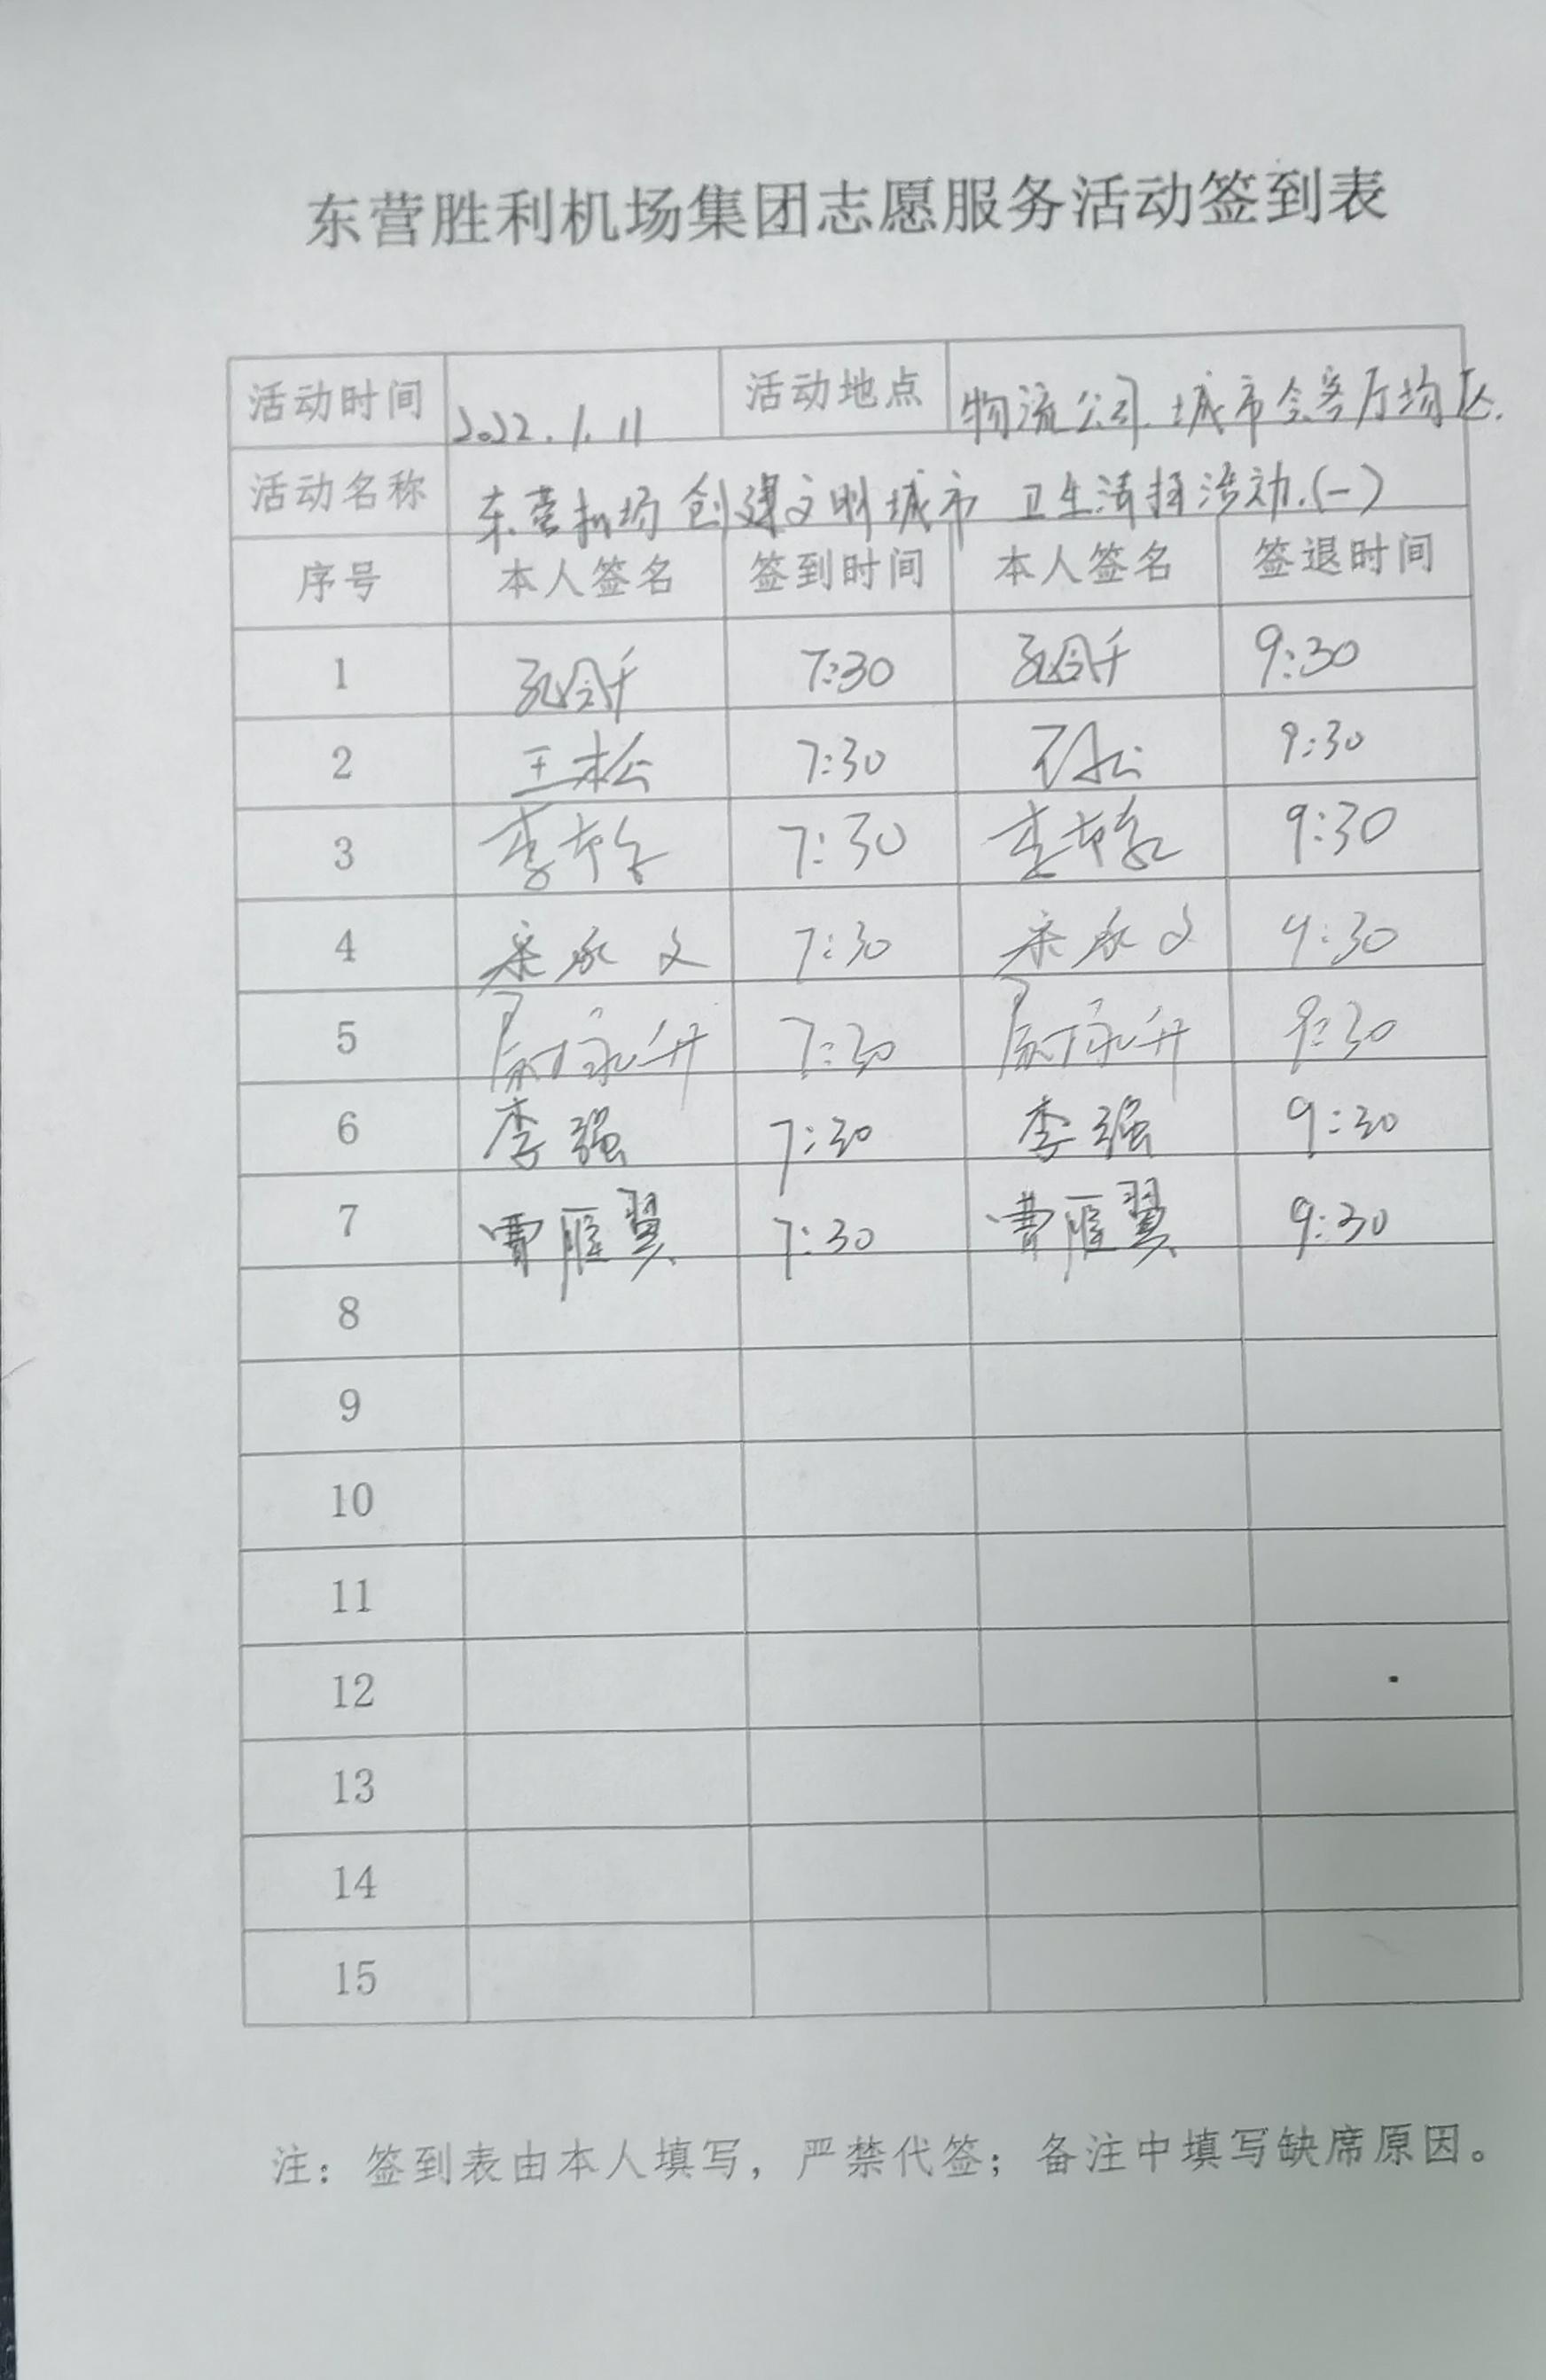 东营胜利机场集团志愿服务活动签到表
活动时间 2022.1.11 活动地点 物流公司.城市会客厅场区.
活动名称 东营机场创建文明城市 卫生清扫活动.(一)
序号 本人签名 签到时间 本人签名 签退时间
1 7:30 9:30
2 王松 7:30 王松 9:30
3 7:30 9:30
4 7:30 9:30
5 7:30 9:30
6 李强 7:30 李强 9:30
7 曹雁翼 7:30 曹雁翼 9:30
8
9
10
11
12
13
14
15
注：签到表由本人填写，严禁代签；备注中填写缺席原因。